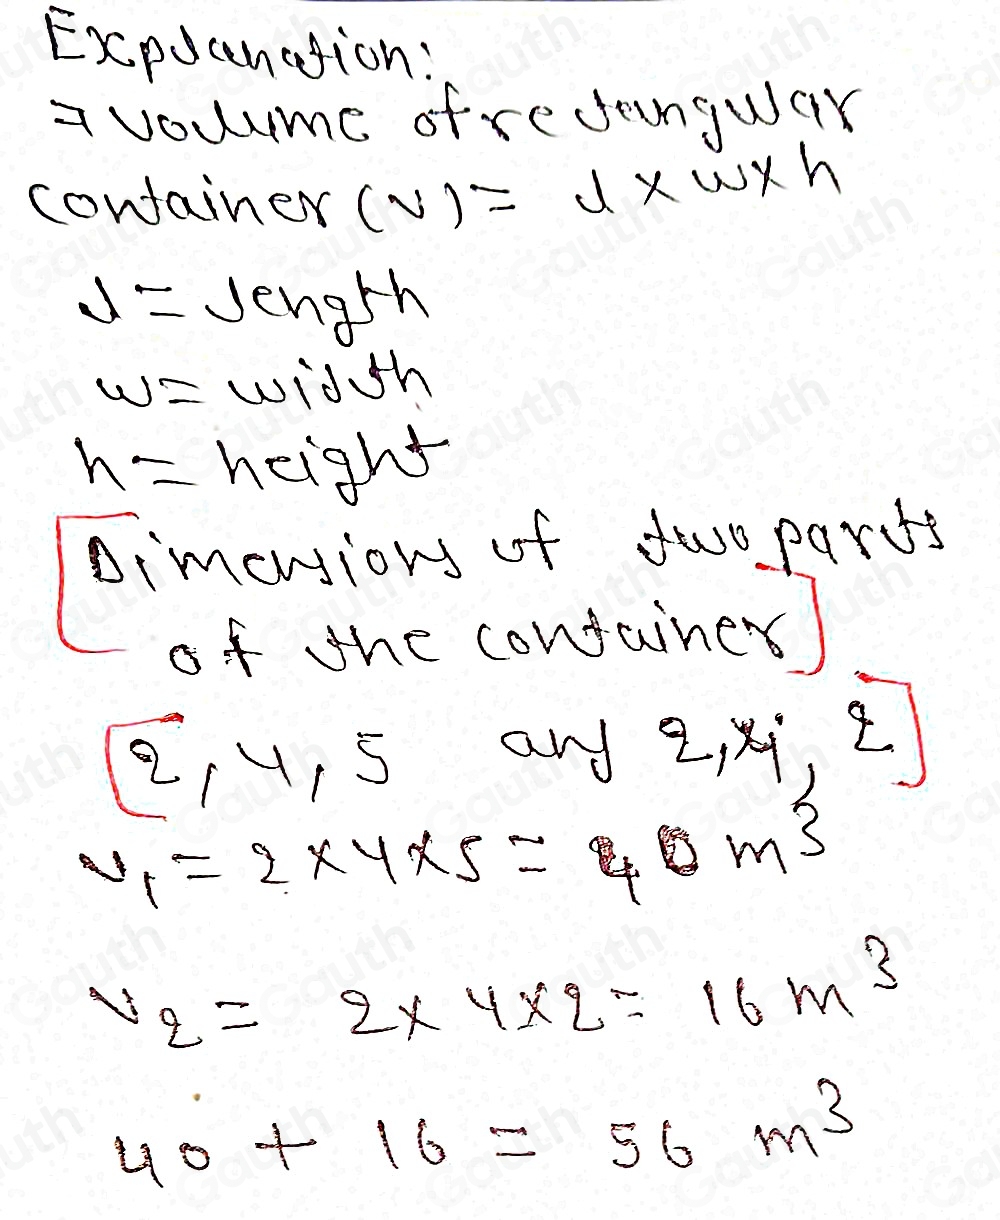 Explanation:
⇒ volume of rectangular
container (v) = l × w × h
l = length
w = width
h = height
[Dimensions of two parts
of the container]
[2, 4, 5 and 2, 4, 2]
v₁ = 2×4×5 = 40 m³
v₂ = 2×4×2 = 16 m³
40 + 16 = 56 m³